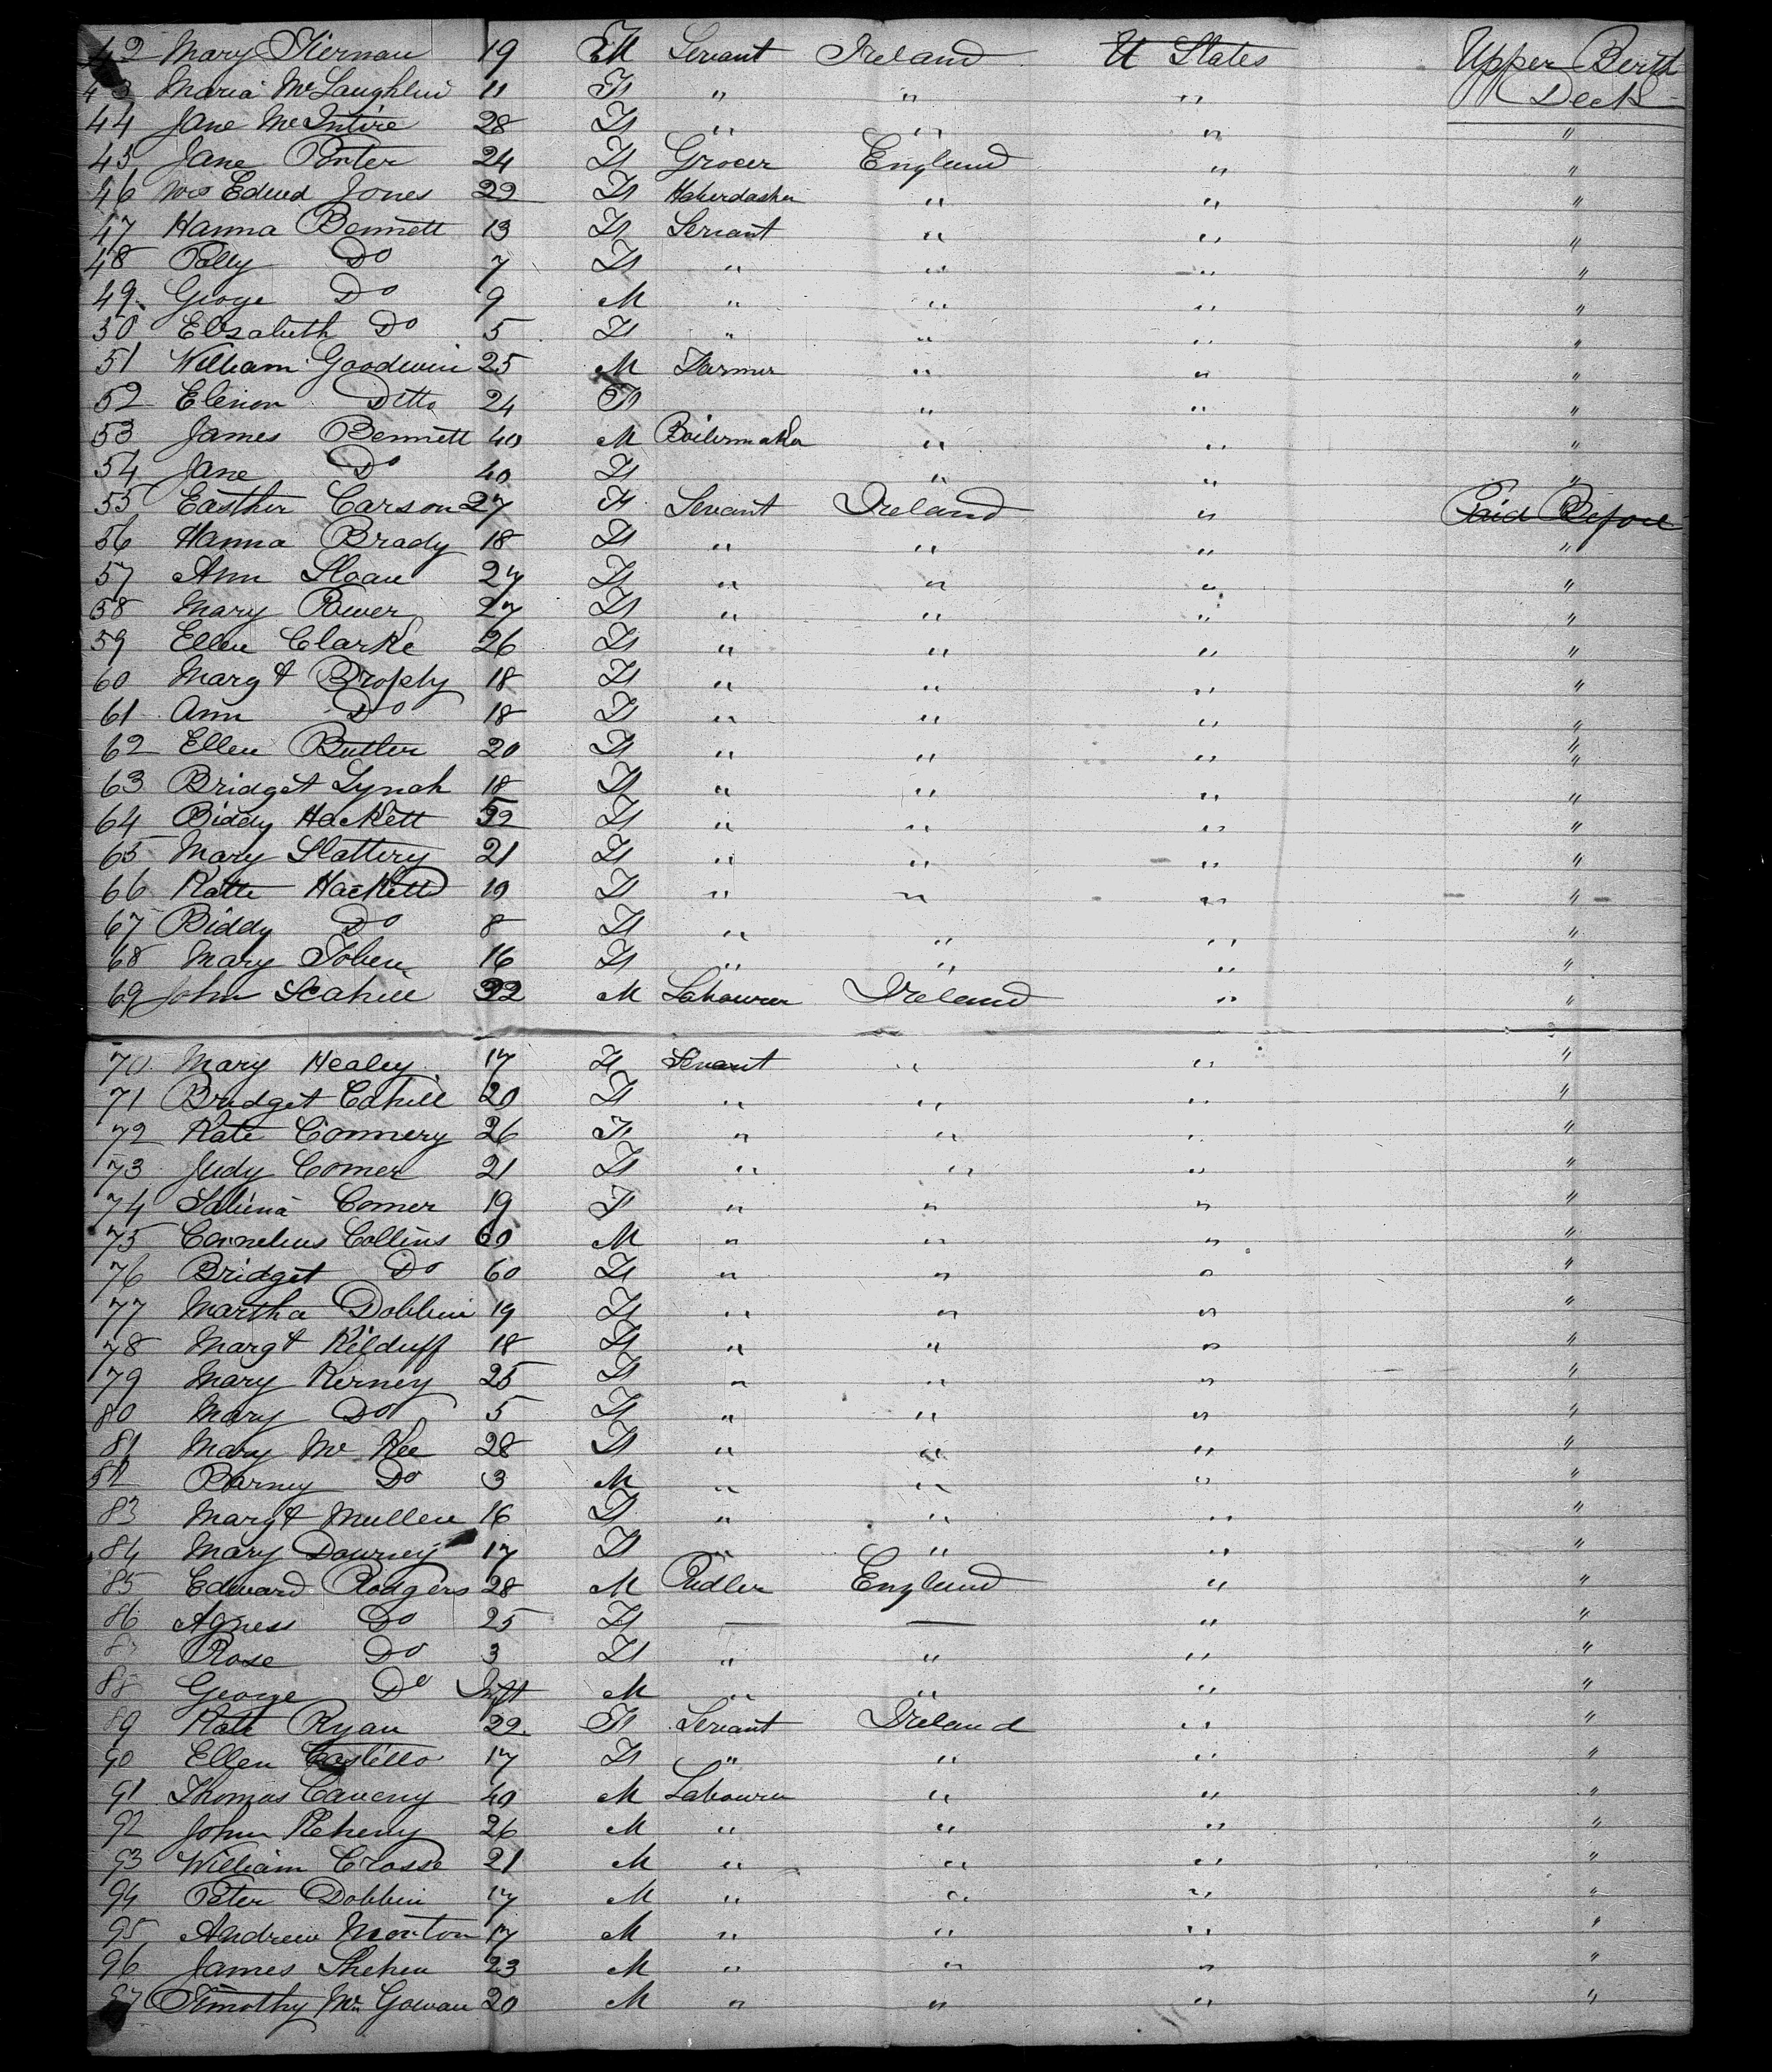 42 Mary Kiernan 19 F Servant Ireland U States Upper Berth
43 Maria McLaughlin 11 F " " " Deck
44 Jane McIntire 28 F " " " "
45 Jane Porter 24 F Grocer England " "
46 Mrs Edwd Jones 22 F Haberdasher " " "
47 Hanna Bennett 13 F Servant " " "
48 Polly Do 7 F " " " "
49 George Do 9 M " " " "
50 Elizabeth Do 5 F " " " "
51 William Goodwin 25 M Farmer " " "
52 Elenon Ditto 24 F " " "
53 James Bennett 40 M Boilermaker " " "
54 Jane Do 40 F " " "
55 Easther Carson 27 F Servant Ireland " Paid Before
56 Hanna Brady 18 F " " " "
57 Ann Sloan 27 F " " " "
58 Mary Power 27 F " " " "
59 Ellen Clarke 26 F " " " "
60 Margt Brophy 18 F " " " "
61 Ann Do 18 F " " " "
62 Ellen Butler 20 F " " " "
63 Bridget Lynch 18 F " " " "
64 Biddy Hackett 52 F " " " "
65 Mary Slattery 21 F " " " "
66 Katte Hackett 19 F " " " "
67 Biddy Do 8 F " " " "
68 Mary Tobin 16 F " " " "
69 John Scahill 32 M Labourer Ireland " "
70 Mary Healey 17 F Servant " " "
71 Bridget Cahill 20 F " " " "
72 Kate Connery 26 F " " " "
73 Judy Comer 21 F " " " "
74 Sabina Comer 19 F " " " "
75 Cornelius Collins 60 M " " " "
76 Bridget Do 60 F " " " "
77 Martha Dobbin 19 F " " " "
78 Margt Kilduff 18 F " " " "
79 Mary Kerney 25 F " " " "
80 Mary Do 5 F " " " "
81 Mary McKee 28 F " " " "
82 Barney Do 3 M " " " "
83 Margt Mullen 16 F " " " "
84 Mary Downey 17 F " " " "
85 Edward Rodgers 28 M Pudler England " "
86 Agness Do 25 F — — " "
87 Rose Do 3 F " " " "
88 George Do Inft M " " " "
89 Kate Ryan 22 F Servant Ireland " "
90 Ellen Costello 17 F " " " "
91 Thomas Caveny 40 M Labourer " " "
92 John Keheny 26 M " " " "
93 William Crosse 21 M " " " "
94 Peter Dobbin 17 M " " " "
95 Andrew Morton 17 M " " " "
96 James Shehen 23 M " " " "
97 Timothy McGowan 20 M " " " "